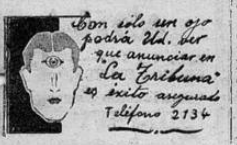 Con sólo un ojo
podría Ud. ver
que anunciar en
"La Tribuna"
es éxito asegurado
Teléfono 2134